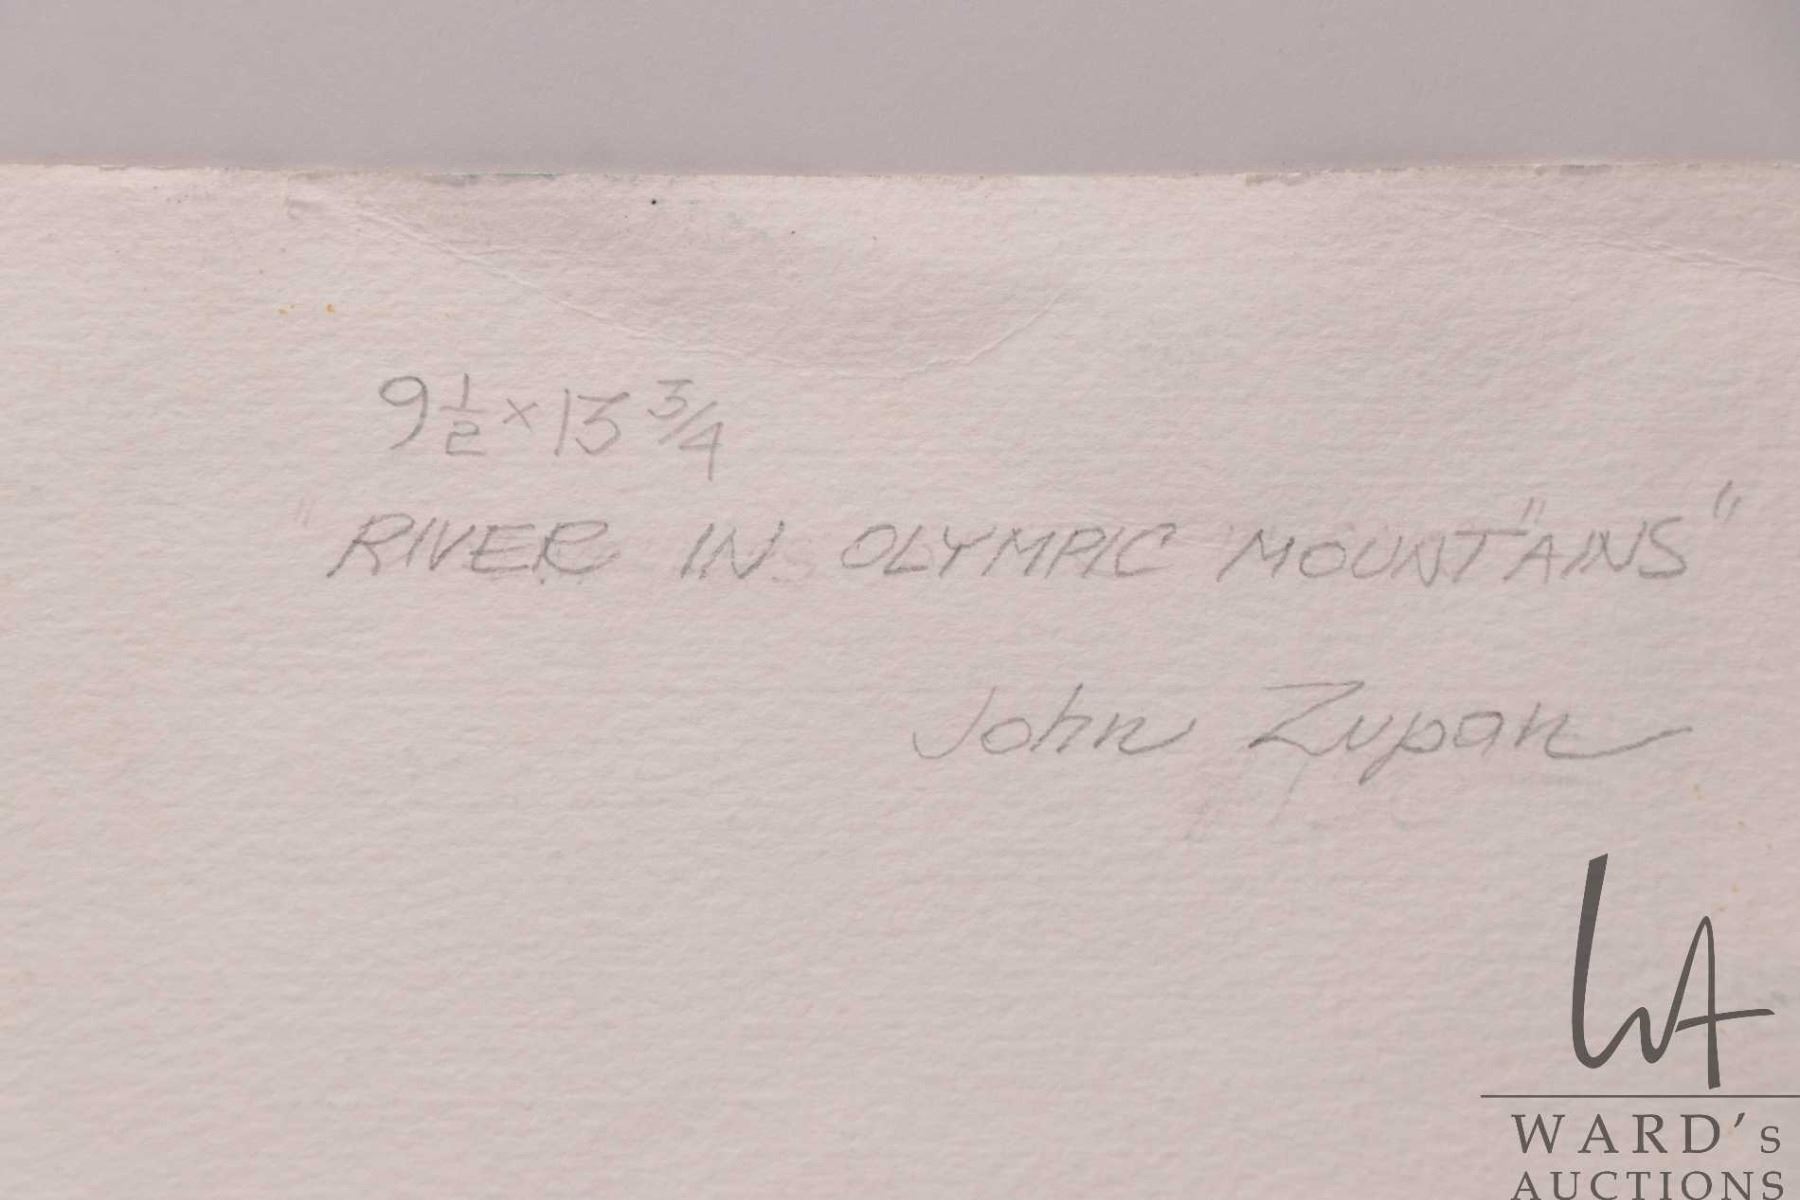 9 1/2 x 13 3/4
"RIVER IN OLYMPIC MOUNT"AINS"
John Zupan
WA
WARD's
AUCTIONS